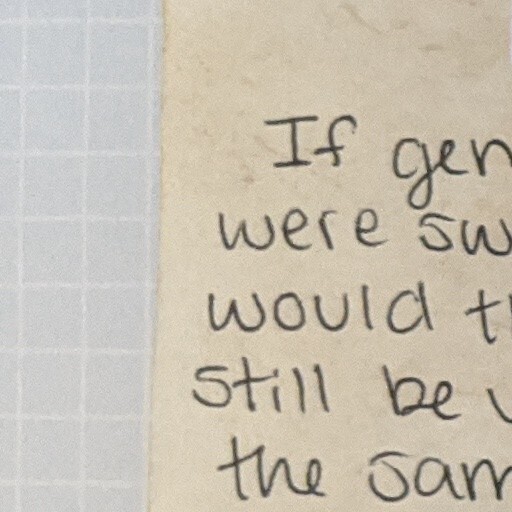 If gen
were sw
would t
still be
the sam